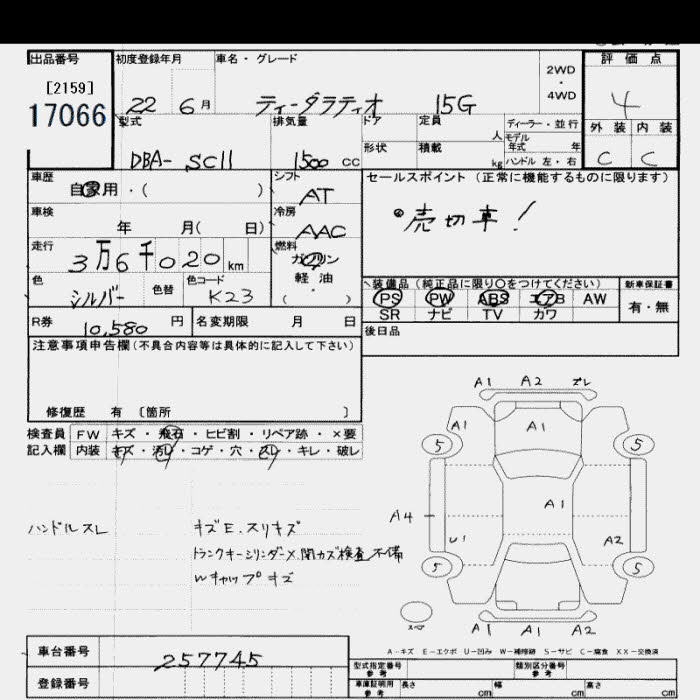 出品番号 初度登録年月 車名・グレード 2WD・4WD 評価点
[2159]
17066 22 6月 ティーダラティオ 15G 4
型式 排気量 ドア 定員 人 ディーラー・並行 外装 内装
DBA- SC11 1500 CC 形状 積載 kg モデル年式 年 ハンドル 左・右 C C
車歴 自家用・( ) シフト AT セールスポイント (正常に機能するものに限ります)
車検 年 月( 日) 冷房 AAC 売切車!
走行 3万6千020km 燃料 ガソリン
色 シルバー 色替 色コード K23 軽油 ( )
装備品 (純正品に限り○をつけてください) 新車保証書
PS PW ABS エアB AW 有・無
SR ナビ TV カワ
R券 10,580 円 名変期限 月 日 後日品
注意事項申告欄 (不具合内容等は具体的に記入して下さい)
修復歴 有 〔箇所 〕
検査員 FW キズ・飛石・ヒビ割・リペア跡・×要
記入欄 内装 キズ・汚レ・コゲ・穴・スレ・キレ・破レ
A1 A2 ズレ
A1 A1
5 5
A1
A4
U1 A2
5 5
スペア A1 A1 A2
ハンドルスレ キズE.スリキズ
トランクキーシリンダー×.開カズ検査不備
Wキャップキズ
A-キズ E-エクボ U-凹み W-補修跡 S-サビ C-腐食 XX-交換済
車台番号 257745 型式指定番号 参考 類別区分番号 参考
登録番号 車庫証明用 参考 長さ cm 幅 cm 高さ cm